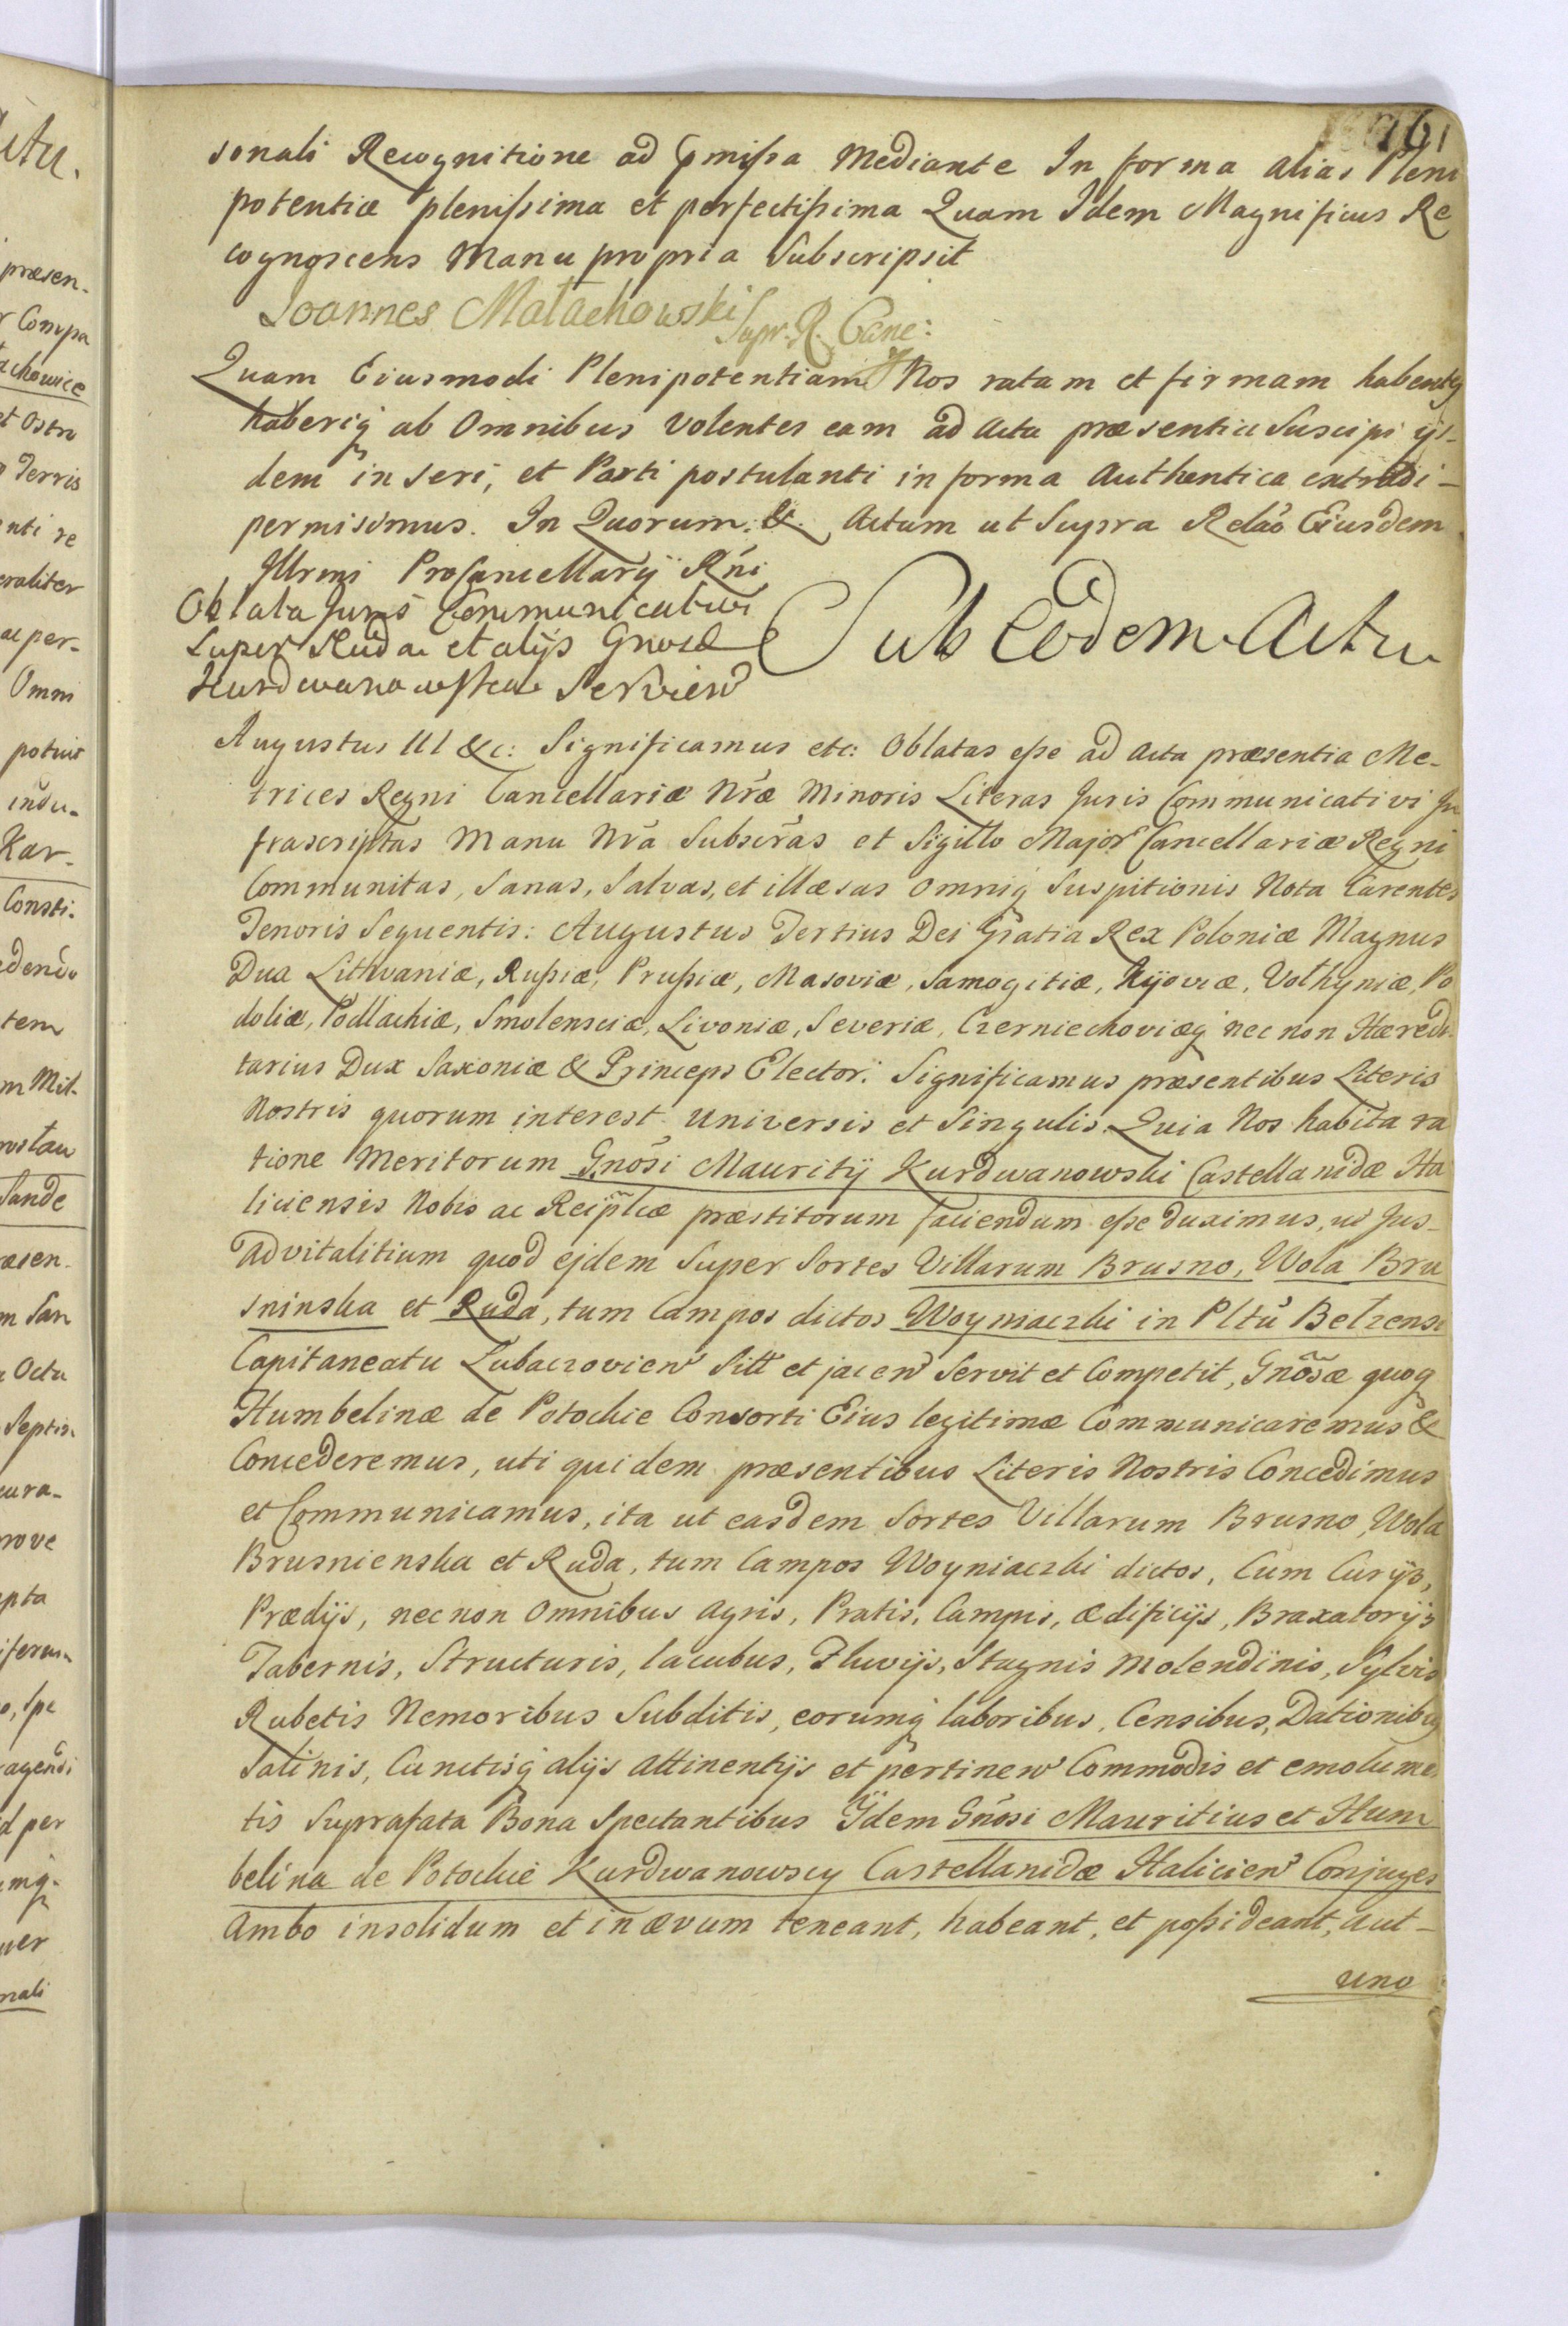 161
sonali Recognitione ad pmissa mediante In forma alias Pleni
potentiæ plenissima et perfectissima Quam Idem Magnificus Re
cognoscens Manu propria Subscripsit
Joannes Małachowski Supr. R. Canc:
Quam Eiusmodi Plenipotentiam Nos ratam et firmam habentes
haberiq ab Omnibus Volentes eam ad Acta præsentia Suscipi ijs-
dem inseri, et Parti postulanti in forma Authentica extradi-
permisimus. In Quorum. &. Actum ut Supra Relaõ Eiusdem
Illrmi ProCancellarij Rñi
Oblata Juris Communicativi
Super Ruda et alijs Gnosæ
Kurdwanowskie Servien
Sub Eodem Actu
Augustus III &c: Significamus etc: Oblatas esse ad Acta præsentia Me-
trices Regni Cancellariæ Nræ Minoris Literas Juris Communicativi In
frascriptas Manu Nrã Subscras et Sigillo Major Cancellariæ Regni
Communitas, Sanas, Salvas, et illæsas Omniq Suspitionis Nota Carentes
Tenoris Sequentis: Augustus Tertius Dei Gratia Rex Poloniæ Magnus
Dux Lithvaniæ, Russiæ, Prussiæ, Masoviæ, Samogitiæ, Kijoviæ, Volhyniæ, Po
doliæ, Podlachiæ, Smolensciæ, Livoniæ, Severiæ, Czerniechoviæq nec non Hæredi
tarius Dux Saxoniæ & Princeps Elector. Significamus præsentibus Literis
Nostris quorum interest Universis et Singulis. Quia Nos habita ra
tione Meritorum Gnosi Mauritij Kurdwanowski Castellanidæ Ha
liciensis Nobis ac Reiplicæ præstitorum faciendum esse duximus, ut Jus-
advitalitium quod ejdem Super Sortes Villarum Brusno, Wola Bru
sninska et Ruda, tum Campos dictos Woyniaczki in Pltu Belzensi
Capitaneatu Lubaczovien Sitt et jacen Servit et Competit, Gnosæ quoq
Humbelinæ de Potockie Consorti Eius legitimæ Communicaremus &
Concederemus, uti quidem præsentibus Literis Nostris Concedimus
et Communicamus, ita ut easdem Sortes Villarum Brusno, Wola
Brusnienska et Ruda, tum Campos Woyniaczki dictos, Cum Curijs,
Prædijs, nec non Omnibus Agris, Pratis, Campis, ædificijs, Braxatorijs
Tabernis, Structuris, lacubus, Fluvijs, Stagnis Molendinis, Sylvis
Rubetis Nemoribus Subditis, eorumq laboribus, Censibus, Dationibus
Salinis, Cunctisq alijs attinentijs et pertinen Commodis et emolumen
tis Suprafata Bona Spectantibus Ijdem Gnosi Mauritius et Hum
belina de Potockie Kurdwanowscy Castellanidæ Halicien Conjuges
Ambo insolidum et in ævum teneant, habeant, et possideant, aut-
uno